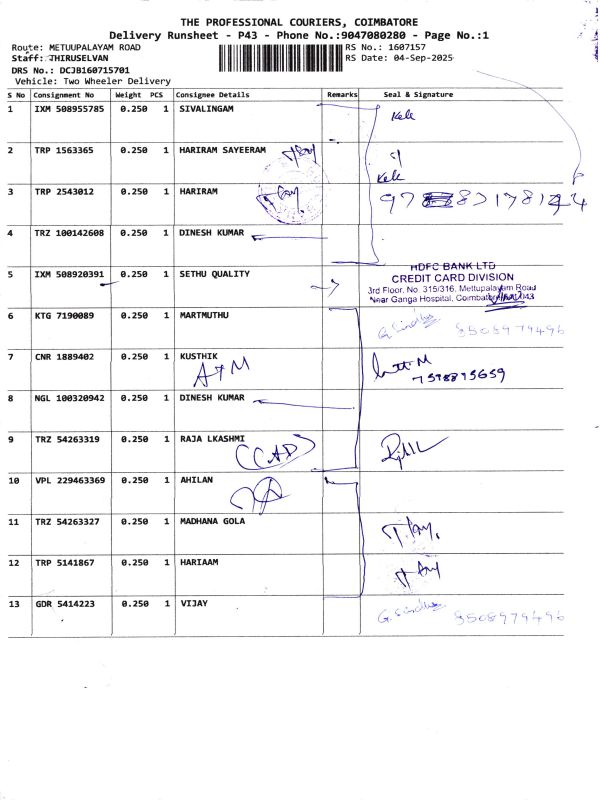 THE PROFESSIONAL COURIERS, COIMBATORE
Delivery Runsheet - P43 - Phone No.:9047080280 - Page No.:1
Route: METUUPALAYAM ROAD RS No.: 1607157
Staff: THIRUSELVAN RS Date: 04-Sep-2025
DRS No.: DCJB160715701
Vehicle: Two Wheeler Delivery
S No Consignment No Weight PCS Consignee Details Remarks Seal & Signature
1 IXM 508955785 0.250 1 SIVALINGAM
2 TRP 1563365 0.250 1 HARIRAM SAYEERAM
3 TRP 2543012 0.250 1 HARIRAM
4 TRZ 100142608 0.250 1 DINESH KUMAR
5 IXM 508920391 0.250 1 SETHU QUALITY
HDFC BANK LTD
CREDIT CARD DIVISION
3rd Floor, No 315/316, Mettupalayam Road
Near Ganga Hospital,
6 KTG 7190089 0.250 1 MARTMUTHU G. Sindhu 8508979496
7 CNR 1889402 0.250 1 KUSTHIK
ATM 7598875659
8 NGL 100320942 0.250 1 DINESH KUMAR
9 TRZ 54263319 0.250 1 RAJA LKASHMI
10 VPL 229463369 0.250 1 AHILAN
11 TRZ 54263327 0.250 1 MADHANA GOLA
12 TRP 5141867 0.250 1 HARIAAM
13 GDR 5414223 0.250 1 VIJAY G. Sindhu 8508979496